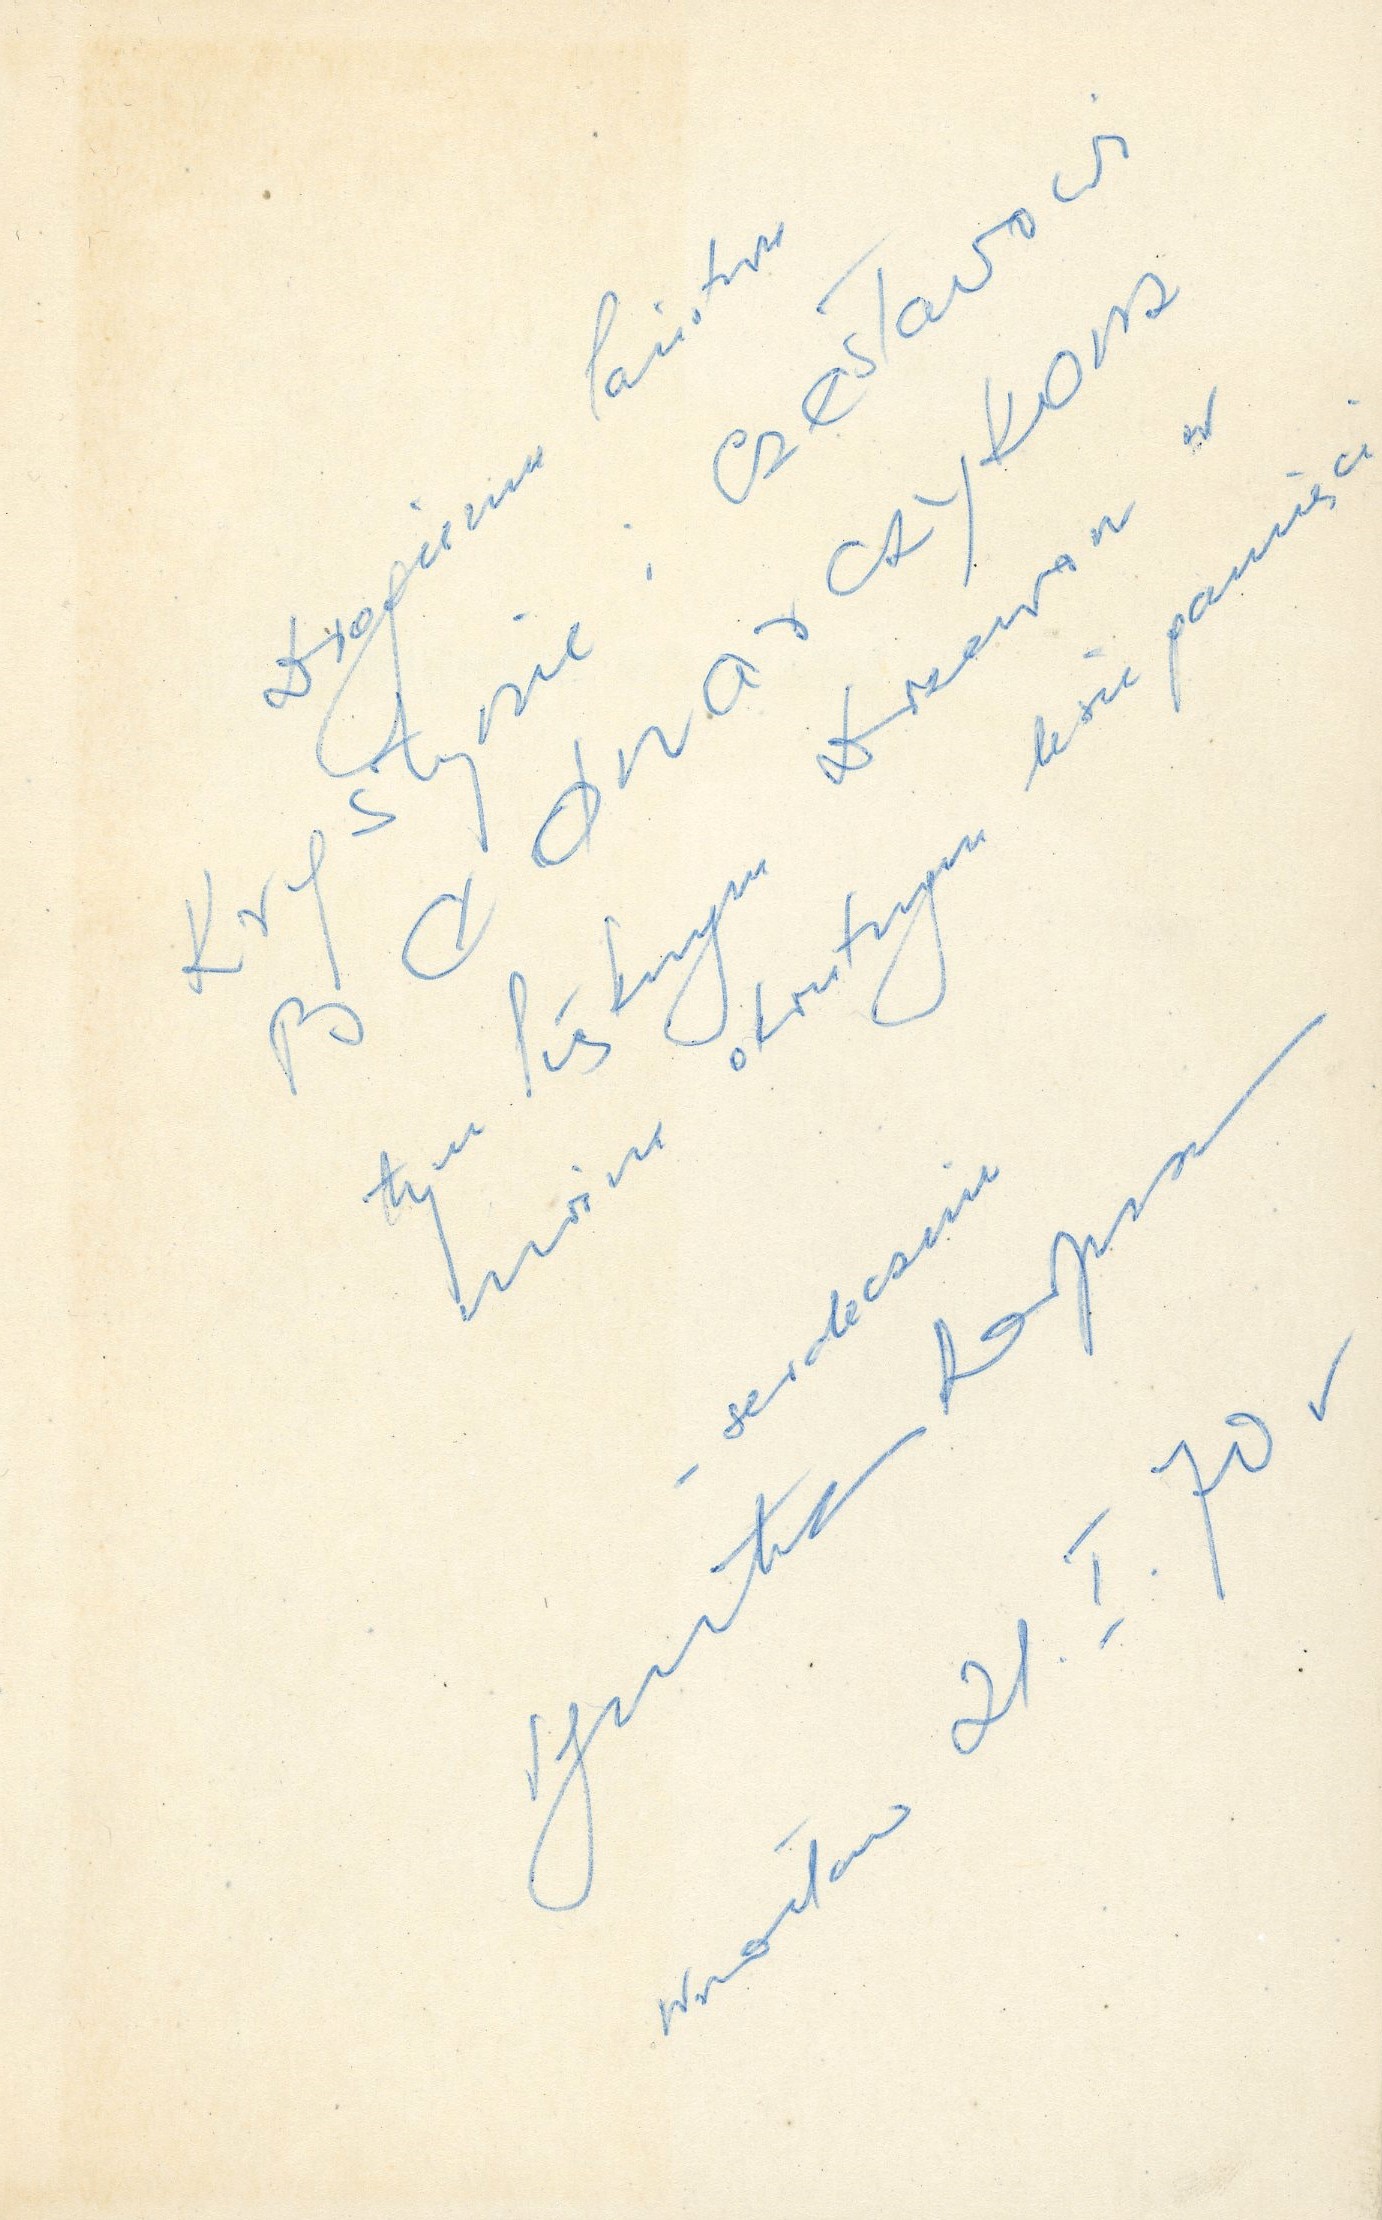 Drogiemu Państwu
Krystynie i Czesławowi
Bednarczykom
tym pięknym Drzewom w
moim okrutnym lesie pamięci
- serdecznie
Tymoteusz Karpowicz
Wrocław 21.I.70 r